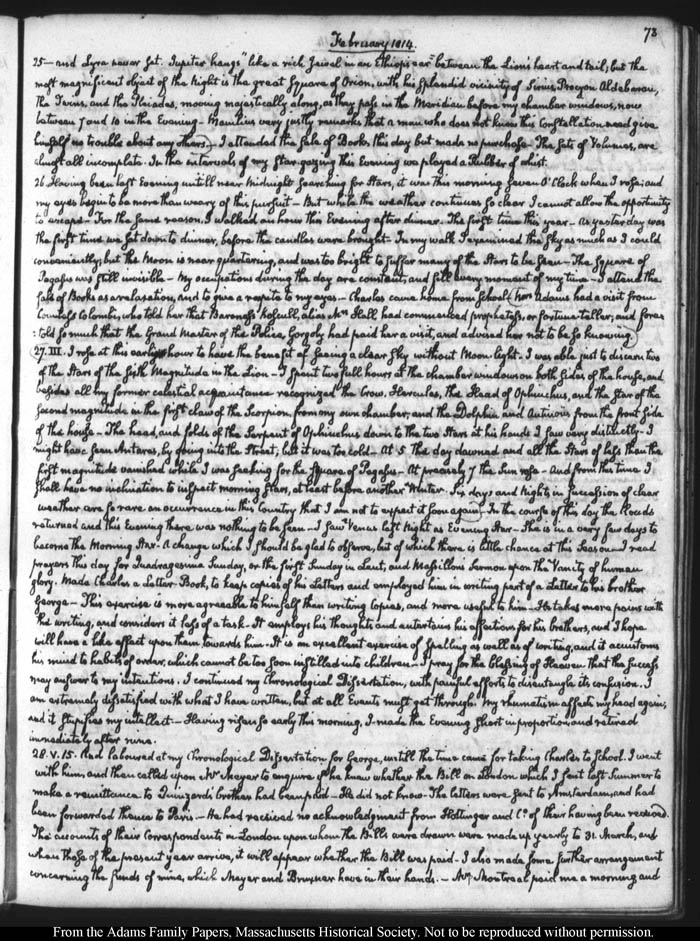 February 1814.
73
25 — and Lyra never set. Jupiter hangs "like a rich Jewel in an Ethiop's ear" between the Lion's heart and tail; but the
most magnificent object of the Night is the great Square of Orion, with his splendid vicinity of Sirius, Procyon Aldebaran,
the Twins, and the Pleiades, moving majestically along, as they pass in the Meridian before my chamber windows, now
between 7 and 10 in the Evening — Manilius very justly remarks that a man who does not know this Constellation need give
himself no trouble about any others. — I attended the Sale of Books, this day but made no purchase. The Sets of Volumes, are
almost all incomplete. In the intervals of my Star-gazing this Evening we played a Rubber of whist.
26. Having been last Evening untill near Midnight searching for Stars, it was this morning Seven O'Clock when I rose; and
my eyes begin to be more than weary of this pursuit — But while the weather continues so clear I cannot allow the opportunity
to escape — For the same reason, I walked an hour this Evening after dinner. The first time this year — As yesterday was
the first time we sat down to dinner, before the candles were brought — In my walk I examined the Sky as much as I could
conveniently, but the Moon is near quartering, and was too bright to suffer many of the Stars to be seen — The Square of
Pegasus was still invisible — My occupations during the day are constant, and fill every moment of my time — I attend the
Sale of Books as a relaxation, and to give a respite to my eyes — Charles came home from School. Mrs Adams had a visit from
Countess Colombi, who told her that Baroness KosCull, alias Mrs Hall had commenced prophetess, or fortune teller; and fore=
=told so much that the Grand Master of the Police, Gorgoly had paid her a visit, and advised her not to be so knowing.
27. III. I rose at this early hour to have the benefit of seeing a clear Sky without Moon-light. I was able just to discern two
of the Stars of the sixth Magnitude in the Lion — I spent two full hours at the chamber windows on both sides of the house, and
besides all my former celestial acquaintance recognized the Crow, Hercules, the Head of Ophiuchus, and the Star of the
second magnitude in the first claw of the Scorpion, from my own chamber; and the Dolphin and Antinous from the front side
of the house — The head, and folds of the Serpent of Ophiuchus down to the two Stars at his hands I saw very distinctly — I
might have seen Antares, by going into the Street, but it was too cold — At 5 the day dawned and all the Stars of less than the
first magnitude vanished while I was seeking for the Square of Pegasus — At precisely 7 the Sun rose — And from this time I
shall have no inclination to inspect morning Stars, at least before another Winter. Six days and Nights in succession of clear
weather are so rare an occurrence in this Country that I am not to expect it soon again. In the course of this day the Clouds
returned and this Evening there was nothing to be seen — I saw Venus last Night as Evening Star — She is in a very few days to
become the Morning Star — A change which I should be glad to observe, but of which there is little chance at this Season — I read
prayers this day for Quadragesima Sunday, or the first Sunday in Lent, and Massillon's Sermon upon the Vanity of human
glory. Made Charles a Letter-Book, to keep copies of his Letters and employed him in writing part of a Letter to his brother
George — This exercise is more agreeable to himself than writing Copies, and more useful to him — He takes more pains with
the writing, and considers it less of a task. It employs his thoughts and entertains his affections for his brothers, and I hope
will have a like effect upon them towards him — It is an excellent exercise of Spelling as well as of writing, and it accustoms
his mind to habits of order, which cannot be too soon instilled into children — I pray for the blessing of Heaven that the success
may answer to my intentions. I continued my Chronological Dissertation, with painful efforts to disentangle its confusion. I
am extremely dissatisfied with what I have written, but at all Events must get through. My rheumatism affects my head again;
and it stupifies my intellect — Having risen so early this morning, I made the Evening short in proportion, and retired
immediately after nine.
28. V. 15. And laboured at my Chronological Dissertation for George, untill the time came for taking Charles to School. I went
with him, and then called upon Mr Meyer to enquire if he knew whether the Bill on London which I sent last Summer to
make a remittance to brother had been paid — He did not know — The letters were sent to Amsterdam, and had
been forwarded thence to Paris — He had received no acknowledgment from Hottinger and Co. of their having been received.
The accounts of their Correspondents in London upon whom the Bills were drawn were made up yearly to 31. March, and
when those of the present year arrive, it will appear whether the Bill was paid — I also made some further arrangement
concerning the funds of mine, which Meyer and Bruxner have in their hands. — Mr Montreal paid me a morning and
From the Adams Family Papers, Massachusetts Historical Society. Not to be reproduced without permission.